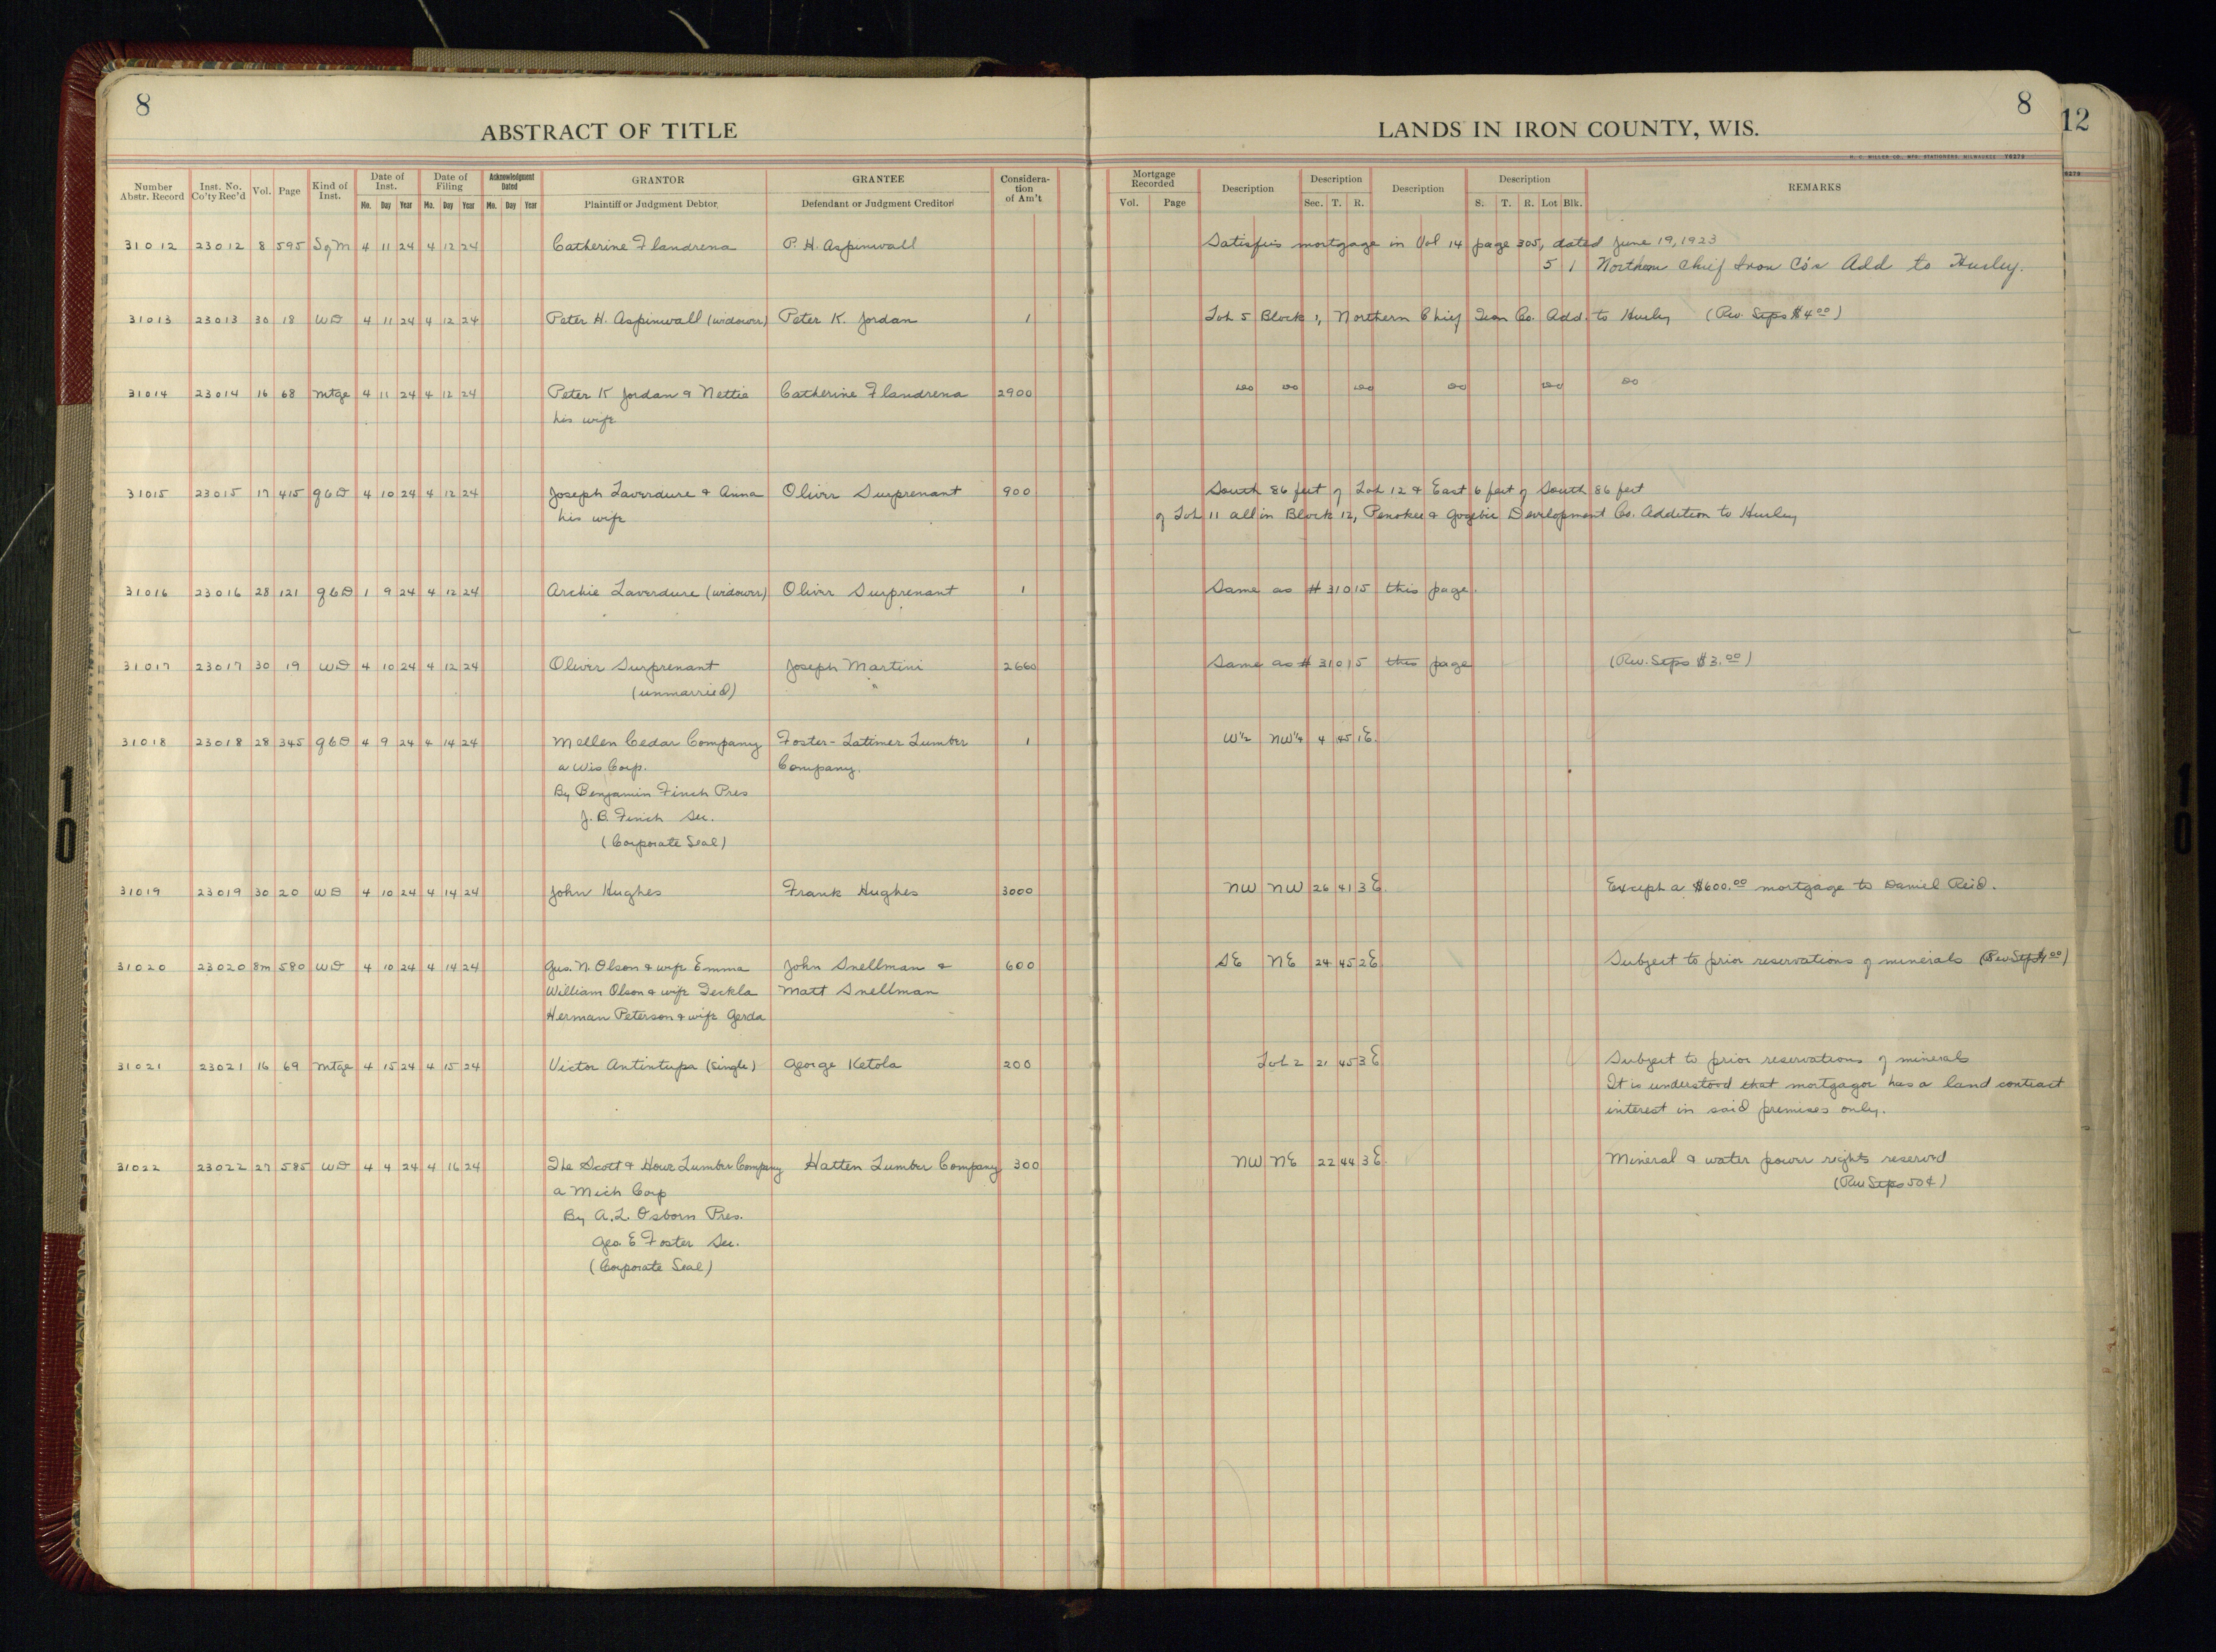 8
ABSTRACT OF TITLE
LANDS IN IRON COUNTY, WIS.
8
12
H. C. MILLER CO. MFG. STATIONERS, MILWAUKEE Y6279
6279
Number Abstr. Record | Inst. No. Co'ty Rec'd | Vol. | Page | Kind of Inst. | Date of Inst. Mo. Day Year | Date of Filing Mo. Day Year | Acknowledgment Dated Mo. Day Year | GRANTOR Plaintiff or Judgment Debtor | GRANTEE Defendant or Judgment Creditor | Considera-tion of Am't | Mortgage Recorded Vol. Page | Description | Description Sec. T. R. | Description | Description S. T. R. Lot Blk. | REMARKS
31012 23012 8 595 SqM 4 11 24 4 12 24 Catherine Flandrena P. H. Aspinwall Satisfies mortgage in Vol 14 page 305, dated June 19, 1923
5 1 Northern Chief Iron Co's Add to Hurley.
31013 23013 30 18 WD 4 11 24 4 12 24 Peter H. Aspinwall (widower) Peter K. Jordan 1 Lot 5 Block 1, Northern Chief Iron Co. Add. to Hurley (Rev. Stps $4 00)
31014 23014 16 68 mtge 4 11 24 4 12 24 Peter K Jordan & Nettie Catherine Flandrena 2900 do do do do do do
his wife
31015 23015 17 415 qcD 4 10 24 4 12 24 Joseph Laverdure & Anna Oliver Surprenant 900 South 86 feet of Lot 12 & East 6 feet of South 86 feet
his wife of Lot 11 all in Block 12, Penokee & Gogebic Development Co. Addition to Hurley
31016 23016 28 121 qcD 1 9 24 4 12 24 Archie Laverdure (widower) Oliver Surprenant 1 Same as # 31015 this page.
31017 23017 30 19 WD 4 10 24 4 12 24 Oliver Surprenant Joseph Martini 2660 Same as # 31015 this page (Rev. Stps $3.00)
(unmarried) "
31018 23018 28 345 qcD 4 9 24 4 14 24 Mellen Cedar Company Foster-Latimer Lumber 1 W½ NW¼ 4 45 1E.
a Wis Corp. Company.
By Benjamin Finch Pres
J. B. Finch Sec.
(Corporate Seal)
31019 23019 30 20 WD 4 10 24 4 14 24 John Hughes Frank Hughes 3000 NW NW 26 41 3E. Except a $600.00 mortgage to Daniel Reid.
31020 23020 8m 580 WD 4 10 24 4 14 24 Gus. N. Olson & wife Emma John Snellman & 600 SE NE 24 45 2E Subject to prior reservations of minerals (Rev Stps $1 00)
William Olson & wife Teckla Matt Snellman
Herman Peterson & wife Gerda
31021 23021 16 69 mtge 4 15 24 4 15 24 Victor Antintupa (single) George Ketola 200 Lot 2 21 45 3E Subject to prior reservations of minerals
It is understood that mortgagor has a land contract
interest in said premises only.
31022 23022 27 585 WD 4 4 24 4 16 24 The Scott & Howe Lumber Company Hatten Lumber Company 300 NW NE 22 44 3E. Mineral & water power rights reserved
a Mich Corp (Rev Stps 50¢)
By A. L. Osborn Pres.
Geo. E Foster Sec.
(Corporate Seal)
10
10